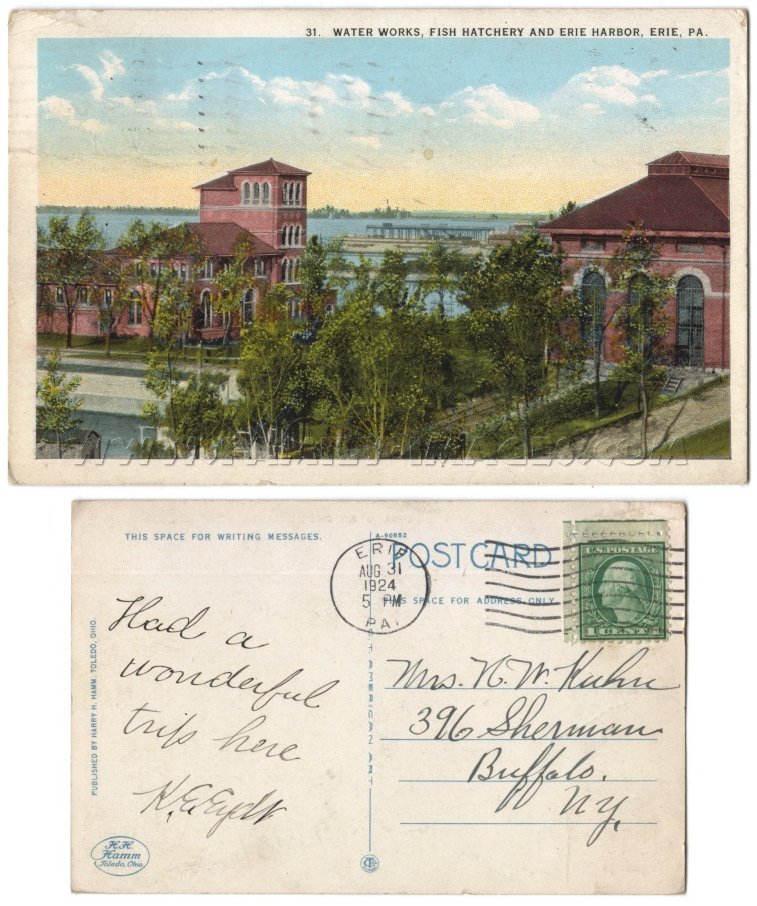 31. WATER WORKS, FISH HATCHERY AND ERIE HARBOR, ERIE, PA.
WWW.FAMILY-IMAGES.COM
THIS SPACE FOR WRITING MESSAGES.
A-90852
POST CARD
THIS SPACE FOR ADDRESS ONLY
ERIE
AUG 31
1924
5 PM
PA.
U.S. POSTAGE
1 CENT 1
PUBLISHED BY HARRY H. HAMM. TOLEDO, OHIO.
Had a
wonderful
trip here
Mrs. N. W. Kuhn
396 Sherman
Buffalo.
NY.
AMERICAN ART
H.H.
Hamm
Toledo, Ohio.